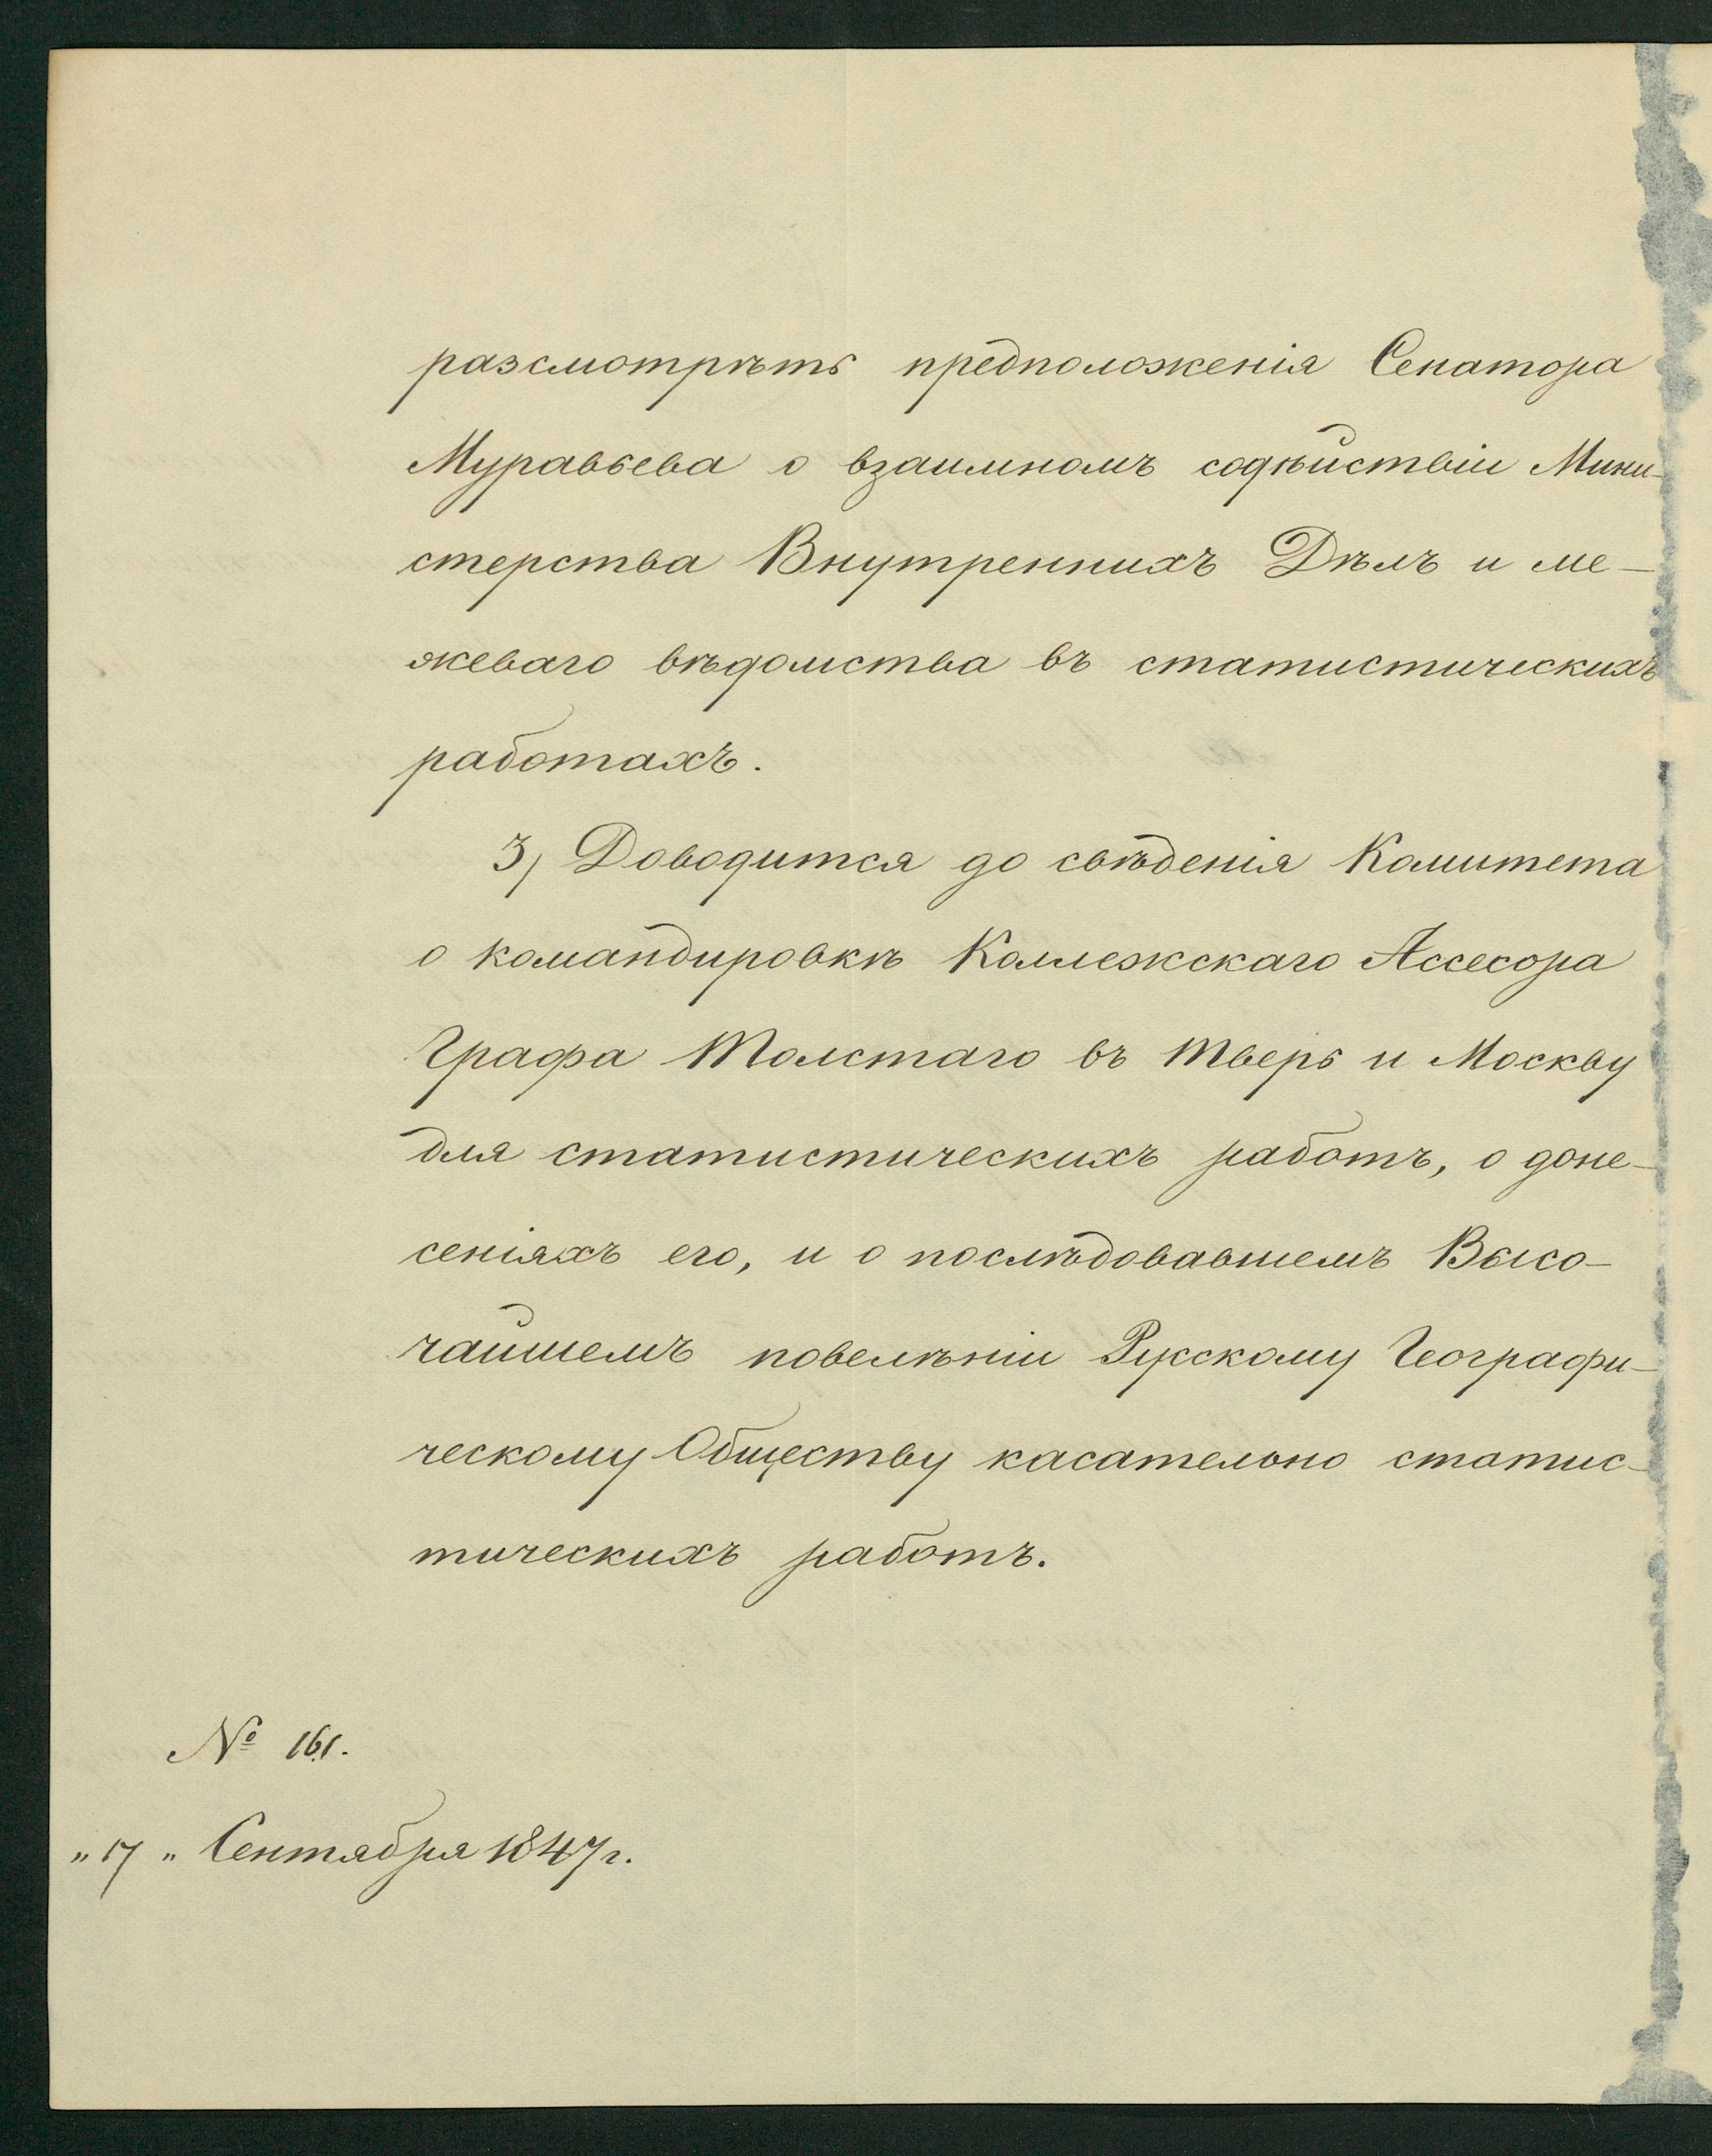 разсмотрѣть предположенія Сенатора
Муравьева о взаимномъ содѣйствіи Мини-
стерства Внутреннихъ Дѣлъ и ме-
жеваго вѣдомства въ статистическихъ
работахъ.
3) Доводится до свѣденія Комитета
о командировкѣ Коллежскаго Ассесора
Графа Толстаго въ Тверь и Москву
для статистическихъ работъ, о доне-
сеніяхъ его, и о послѣдовавшемъ Высо-
чайшемъ повелѣніи Рускому Географи-
ческому Обществу касательно статис-
тическихъ работъ.
№ 161.
"17" Сентября 1847 г.